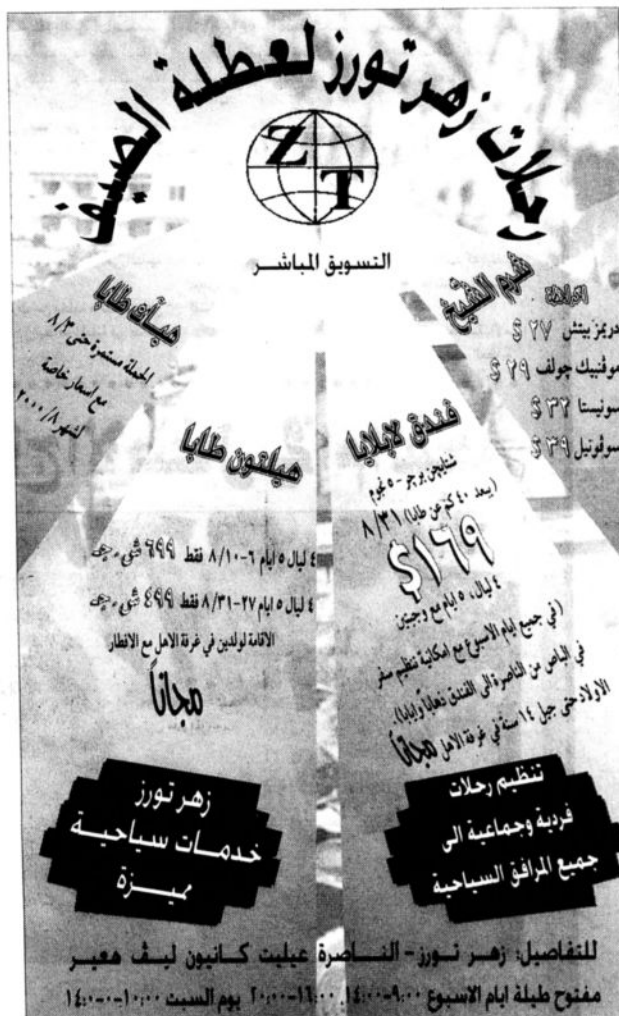 رحلات زهر تورز لعطلة الصيف
Z
T
التسويق المباشـــر
شرم الشيخ
دريمز بيتش ٢٧ $
موڤنبيك جولف ٢٩ $
سونيستا ٣٢ $
سوڤوتيل ٣٩ $
طابا
الحملة مستمرة حتى ٨/٣
مع اسعار خاصة
لشهر ٢٠٠٠/٨
فندق لابلايا
شتايجن برجر - ٥ نجوم
(يبعد ٤٠ كم عن طابا) ٨/٣١
$١٦٩
٤ ليال، ٥ ايام مع وجبتين
(في جميع ايام الاسبوع مع امكانية تنظيم سفر
في الباص من الناصرة الى الفندق ذهاباً وايابا).
الاولاد حتى جيل ١٤ سنة في غرفة الاهل مجاناً
هيلتون طابا
٤ ليال ٥ ايام ٦-٨/١٠ فقط ٦٩٩ ش.ج
٤ ليال ٥ ايام ٢٧-٨/٣١ فقط ٤٩٩ ش.ج
الاقامة لولدين في غرفة الاهل مع الافطار
مجاناً
تنظيم رحلات
فردية وجماعية الى
جميع المرافق السياحية
زهر تورز
خدمـــات سياحيـــة
مميـــزة
للتفاصيل: زهـر تـورز - النـاصرة عيليت كـانيون ليـڤ هعير
مفتوح طيلة ايام الاسبوع ٩:٠٠-١٤:٠٠ ١٦:٠٠-٢٠:٠٠ يوم السبت ١٠:٠٠-١٤:٠٠